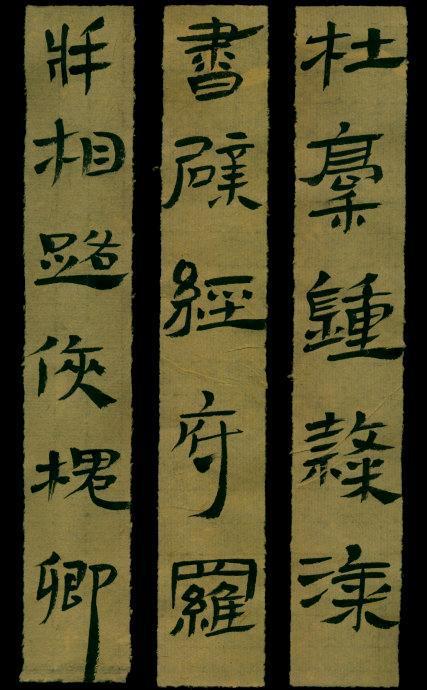 杜稾鍾隸漆
書壁經府羅
將相路俠槐卿